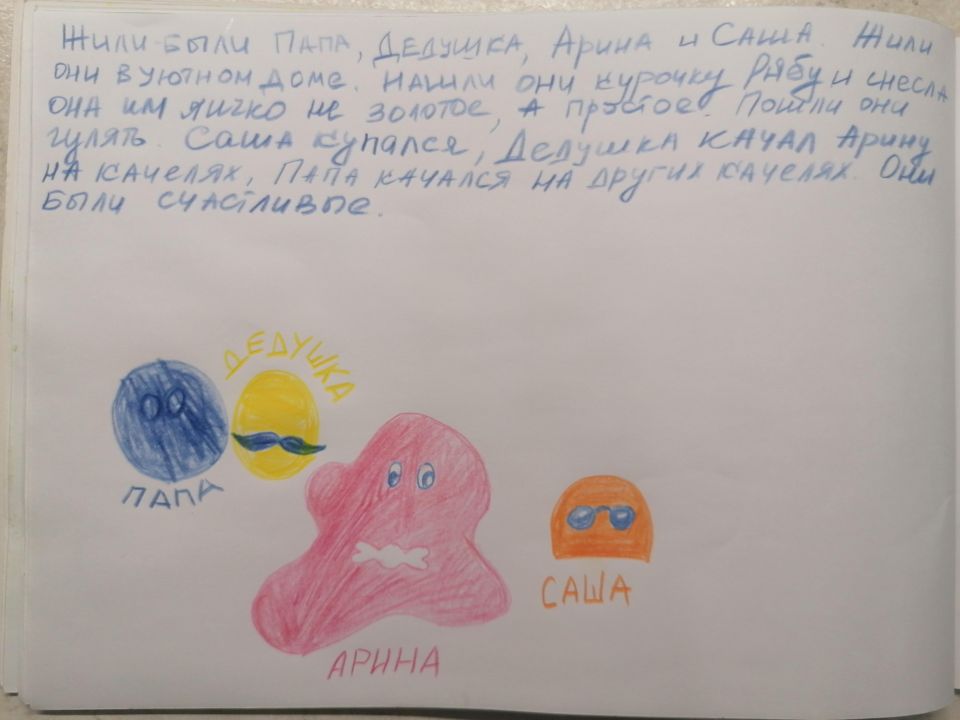 Жили-были Папа, Дедушка, Арина и Саша. Жили
они в уютном доме. Нашли они курочку Рябу и снесла
она им яичко не золотое, а простое. Пошли они
гулять. Саша купался, Дедушка качал Арину
на качелях, Папа качался на других качелях. Они
были счастливые.
ДЕДУШКА
ПАПА
САША
АРИНА